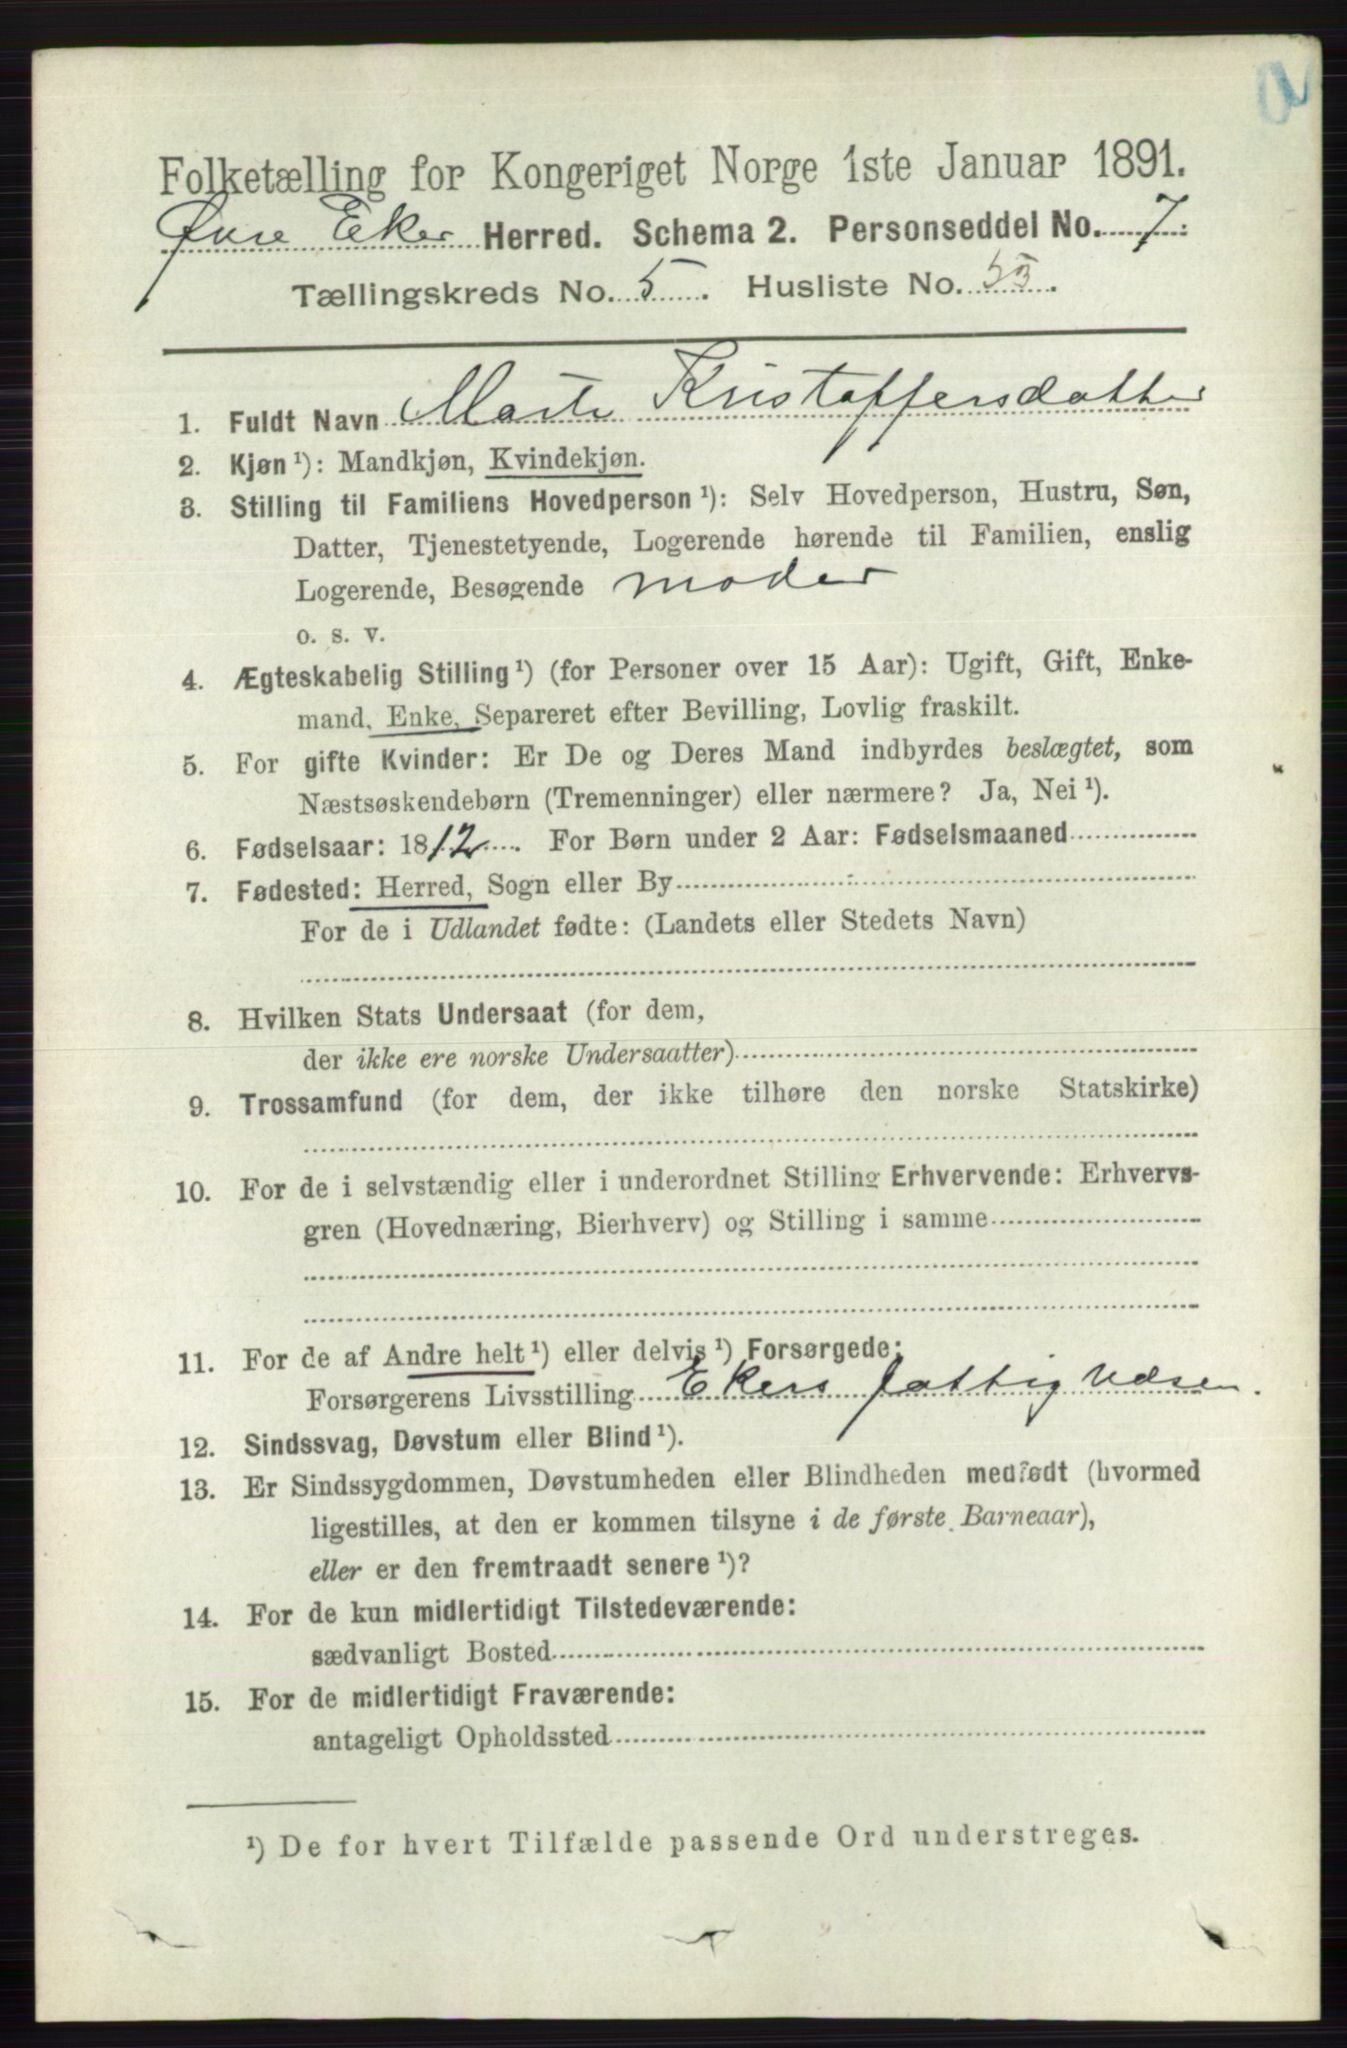 Folketælling for Kongeriget Norge 1ste Januar 1891.
Øvre Eker Herred. Schema 2. Personseddel No. 7.
Tællingskreds No. 5. Husliste No. 53.
1. Fuldt Navn Marte Kristoffersdatter
2. Kjøn ¹): Mandkjøn, Kvindekjøn.
3. Stilling til Familiens Hovedperson ¹): Selv Hovedperson, Hustru, Søn,
Datter, Tjenestetyende, Logerende hørende til Familien, enslig
Logerende, Besøgende moder
o. s. v.
4. Ægteskabelig Stilling ¹) (for Personer over 15 Aar): Ugift, Gift, Enke-
mand, Enke, Separeret efter Bevilling, Lovlig fraskilt.
5. For gifte Kvinder: Er De og Deres Mand indbyrdes beslægtet, som
Næstsøskendebørn (Tremenninger) eller nærmere? Ja, Nei ¹).
6. Fødselsaar: 1812. For Børn under 2 Aar: Fødselsmaaned
7. Fødested: Herred, Sogn eller By
For de i Udlandet fødte: (Landets eller Stedets Navn)
8. Hvilken Stats Undersaat (for dem,
der ikke ere norske Undersaatter)
9. Trossamfund (for dem, der ikke tilhøre den norske Statskirke)
10. For de i selvstændig eller i underordnet Stilling Erhvervende: Erhvervs-
gren (Hovednæring, Bierhverv) og Stilling i samme
11. For de af Andre helt ¹) eller delvis ¹) Forsørgede:
Forsørgerens Livsstilling Ekers fattigvæsen.
12. Sindssvag, Døvstum eller Blind ¹).
13. Er Sindssygdommen, Døvstumheden eller Blindheden medfødt (hvormed
ligestilles, at den er kommen tilsyne i de første Barneaar),
eller er den fremtraadt senere ¹)?
14. For de kun midlertidigt Tilstedeværende:
sædvanligt Bosted
15. For de midlertidigt Fraværende:
antageligt Opholdssted
¹) De for hvert Tilfælde passende Ord understreges.